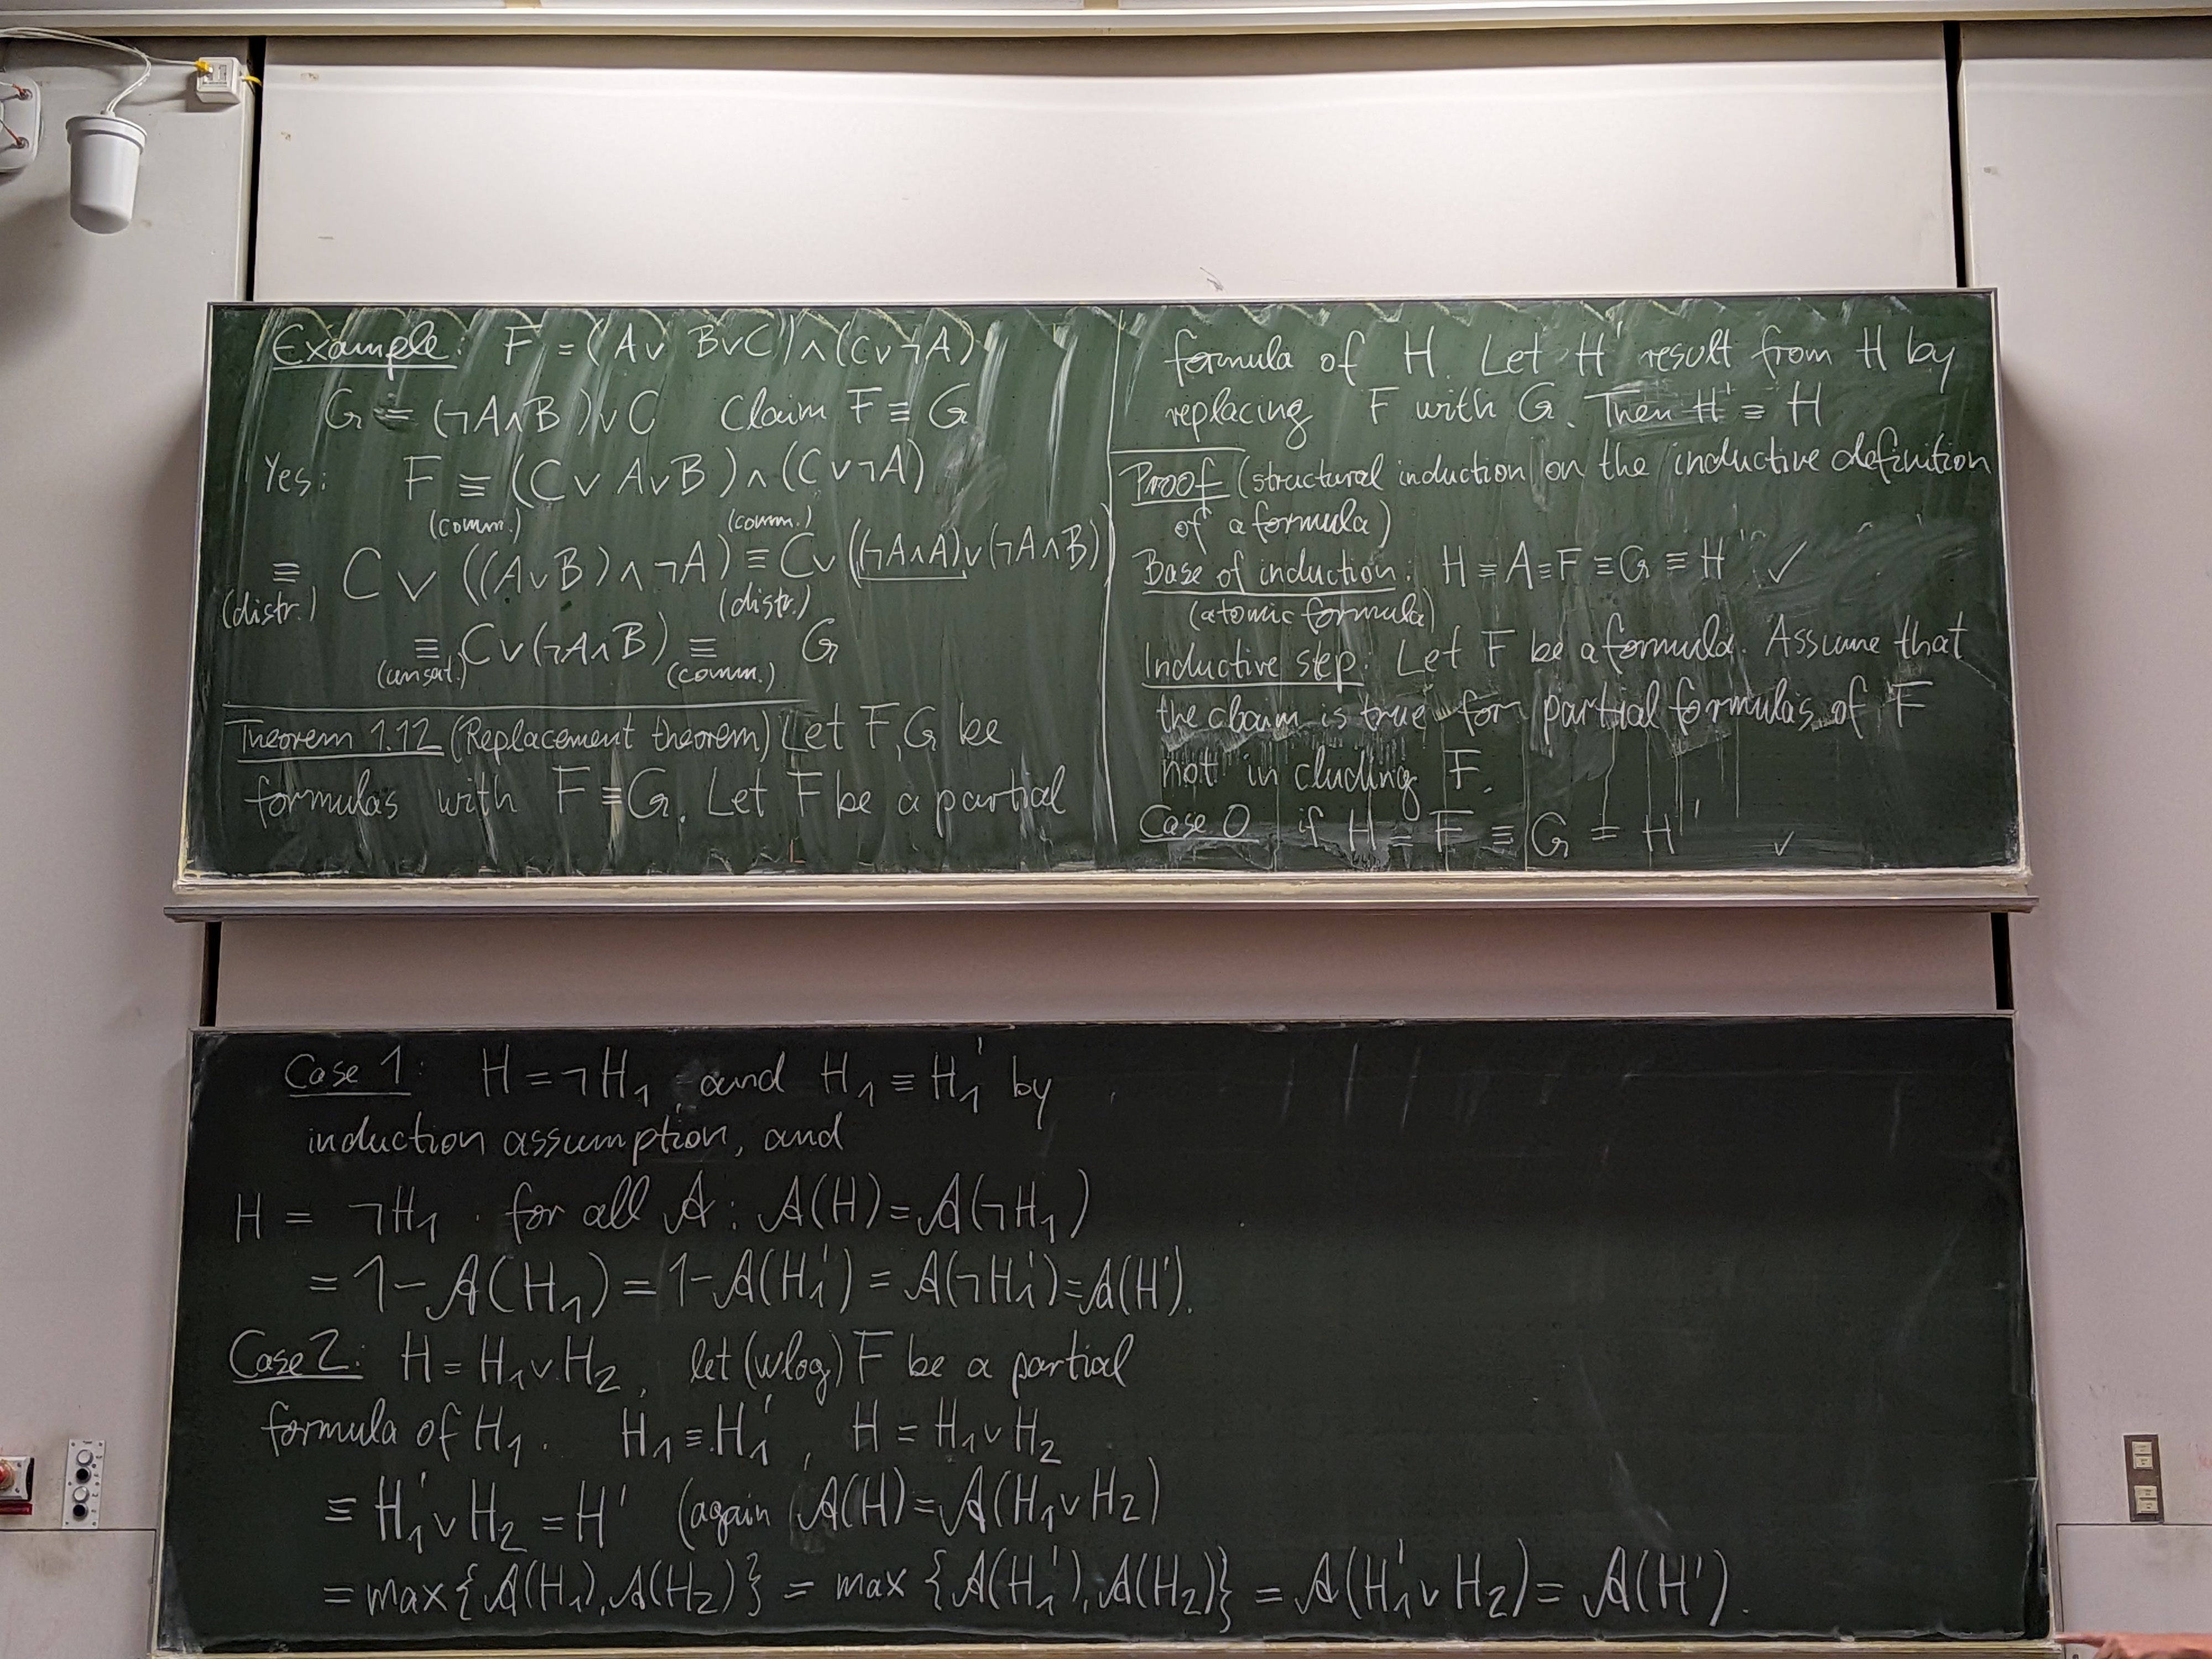 Example: F = (A∨ B∨C) ∧ (C∨¬A)
G = (¬A∧B)∨C Claim F ≡ G
Yes: F ≡ (C∨ A∨B) ∧ (C∨¬A)
(comm.) (comm.)
≡ C ∨ ((A∨B) ∧ ¬A) ≡ C∨ ((¬A∧A)∨(¬A∧B))
(distr.) (distr.)
≡ C∨(¬A∧B) ≡ G
(unsat.) (comm.)
Theorem 1.12 (Replacement theorem) Let F, G be
formulas with F ≡ G. Let F be a partial
formula of H. Let H' result from H by
replacing F with G. Then H' ≡ H
Proof (structural induction on the inductive definition
of a formula)
Base of induction: H = A = F ≡ G ≡ H' ✓
(atomic formula)
Inductive step: Let F be a formula. Assume that
the claim is true for partial formulas of F
not in cluding F.
Case 0 if H = F ≡ G = H' ✓
Case 1: H = ¬H₁ and H₁ ≡ H₁' by
induction assumption, and
H = ¬H₁ . for all 𝒜 : 𝒜(H) = 𝒜(¬H₁)
= 1 - 𝒜(H₁) = 1 - 𝒜(H₁') = 𝒜(¬H₁') = 𝒜(H').
Case 2: H = H₁∨H₂, let (wlog) F be a partial
formula of H₁. H₁ ≡ H₁', H = H₁∨H₂
≡ H₁'∨H₂ = H' (again 𝒜(H) = 𝒜(H₁∨H₂)
= max{𝒜(H₁), 𝒜(H₂)} = max {𝒜(H₁'), 𝒜(H₂)} = 𝒜(H₁'∨H₂) = 𝒜(H').